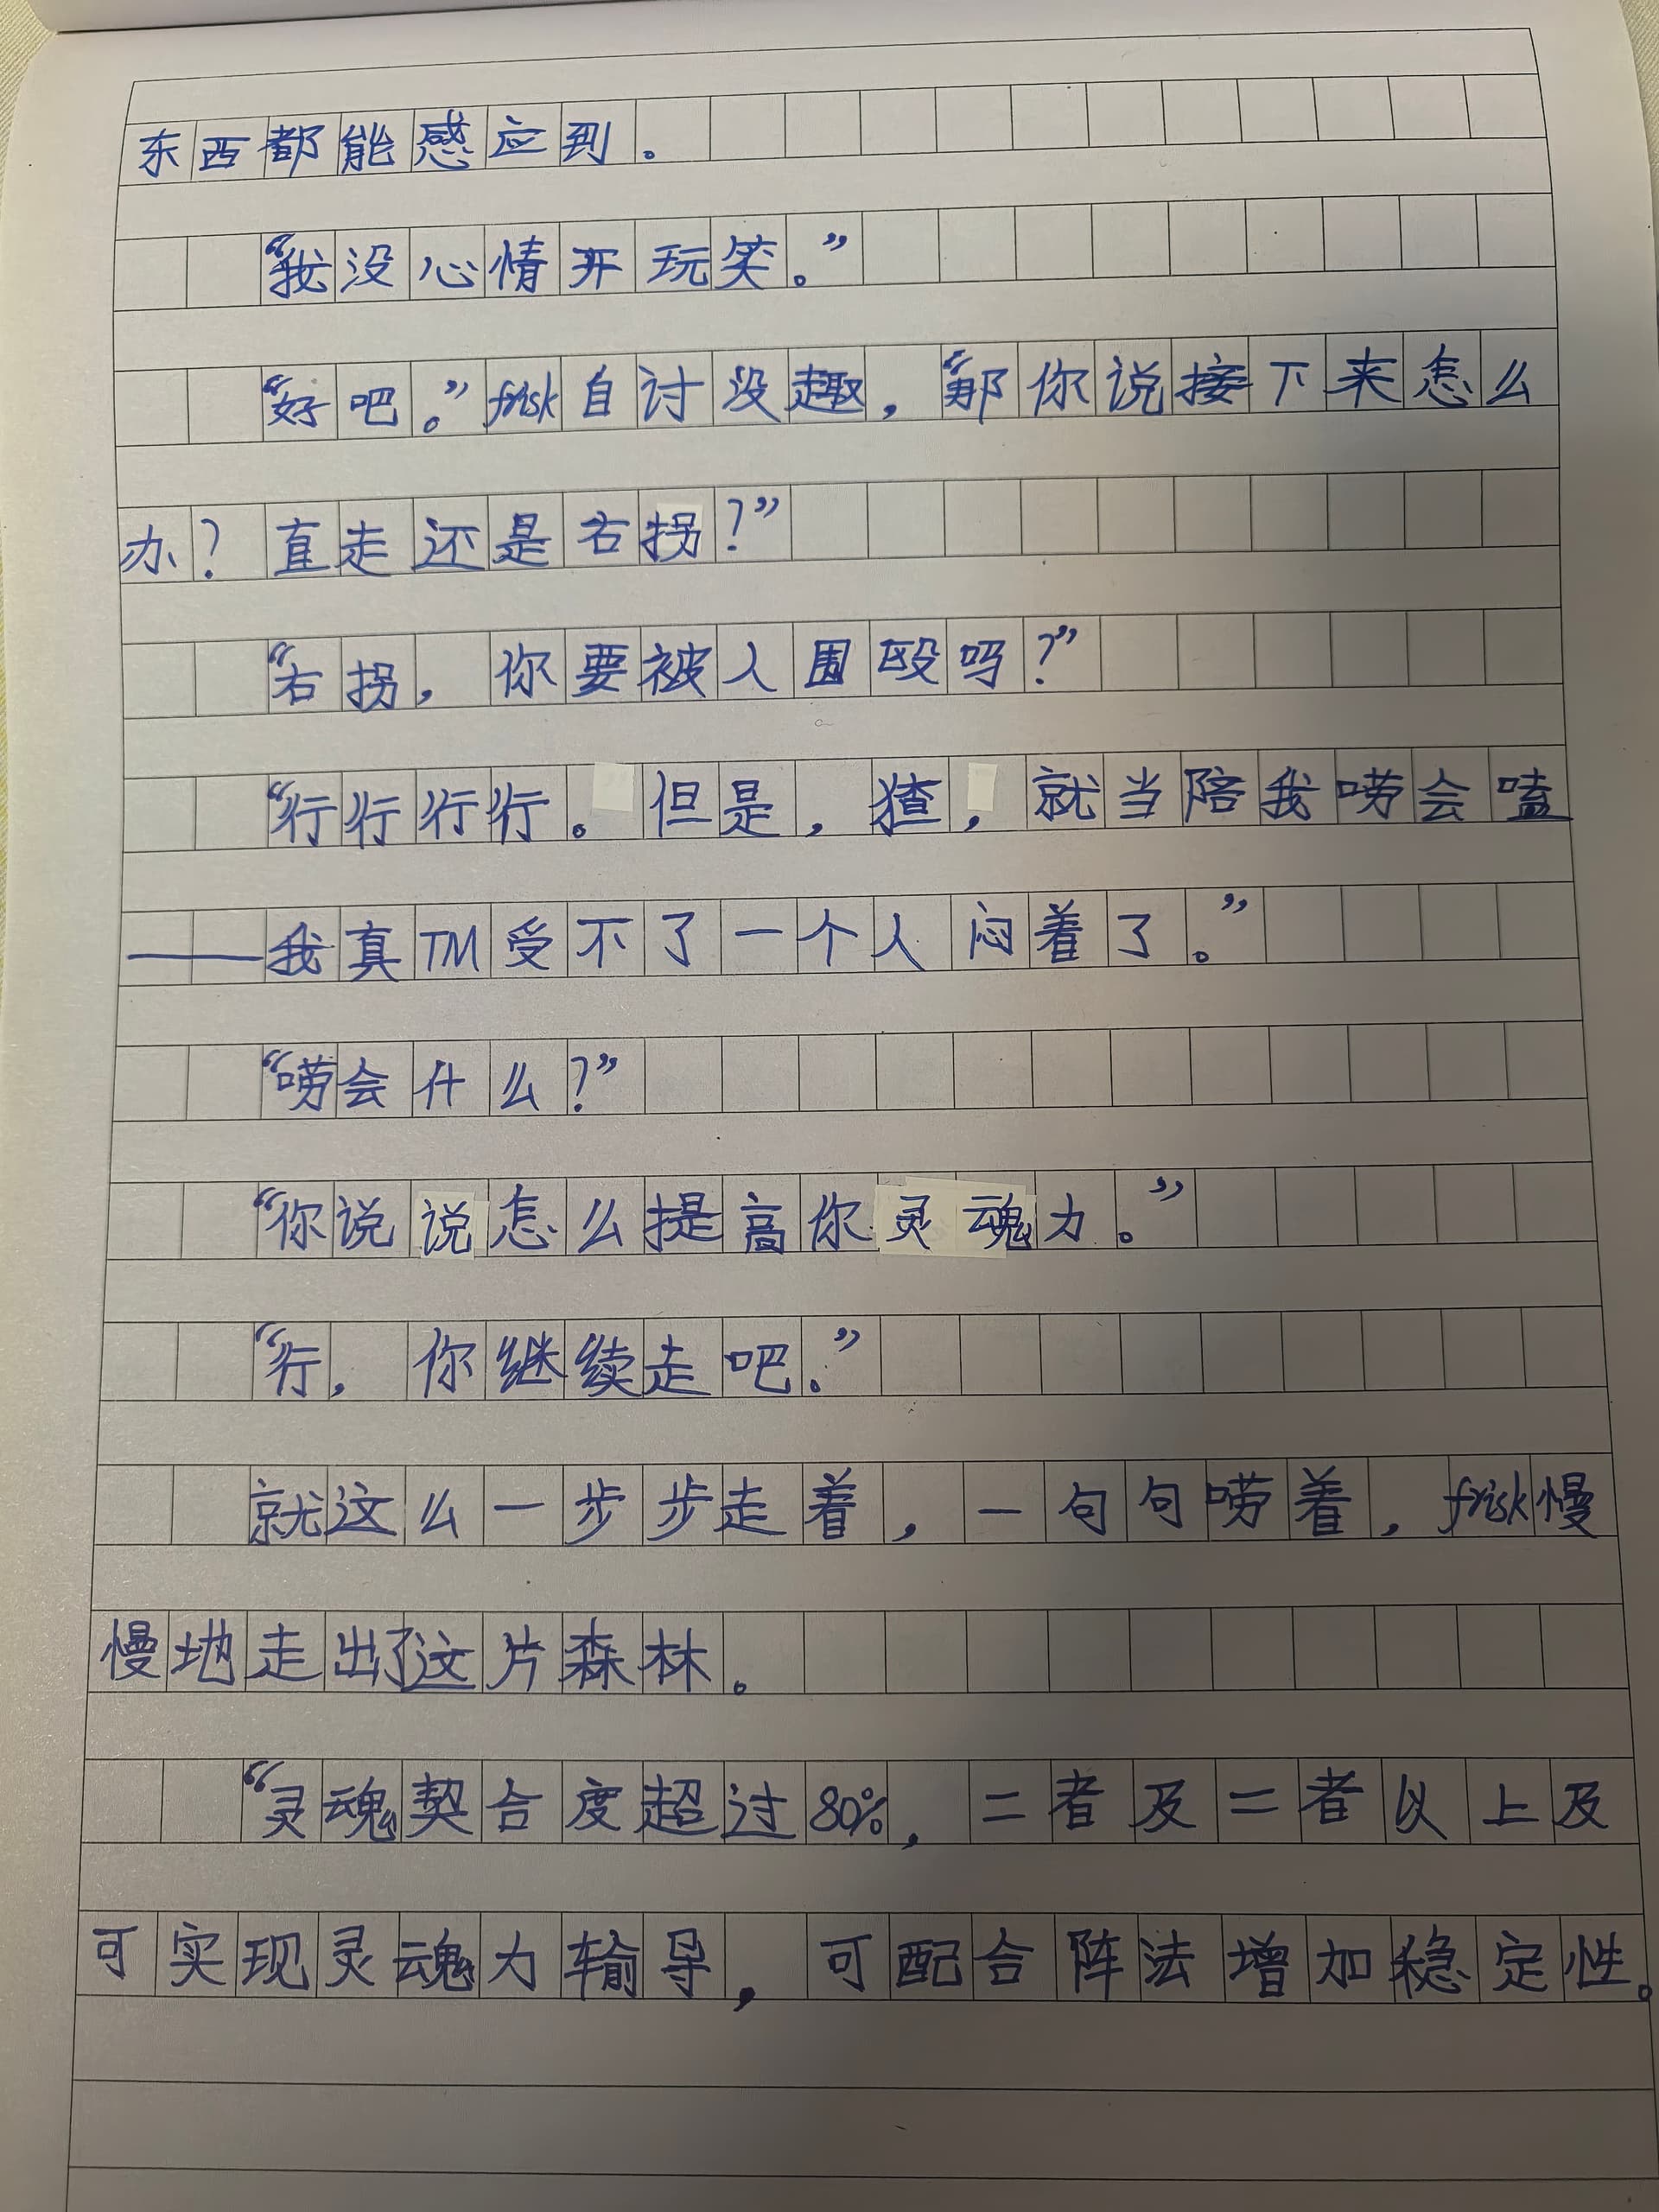 东西都能感应到。
“我没心情开玩笑。”
“好吧。”frisk自讨没趣，“那你说接下来怎么
办？直走还是右拐？”
“右拐，你要被人围殴吗？”
“行行行行。但是，猹，就当陪我唠会嗑
——我真TM受不了一个人闷着了。”
“唠会什么？”
“你说说怎么提高你灵魂力。”
“行，你继续走吧。”
就这么一步步走着，一句句唠着，frisk慢
慢地走出了这片森林。
“灵魂契合度超过80%，二者及二者以上及
可实现灵魂力输导，可配合阵法增加稳定性。